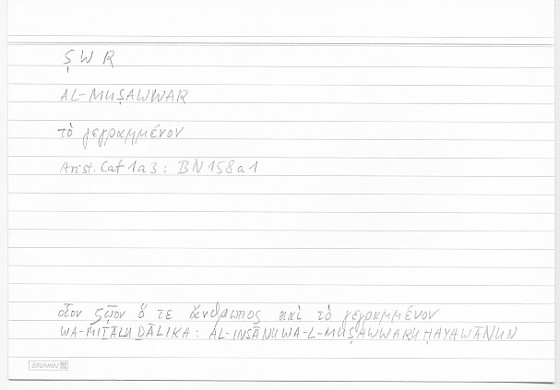 Ṣ W R
AL-MUṢAWWAR
τὸ γεγραμμένον
Arist. Cat 1a3: BN 158a1
οἷον ζῷον ὅ τε ἄνθρωπος καὶ τὸ γεγραμμένον
WA-MIṮĀLU ḎĀLIKA: AL-INSĀNU WA-L-MUṢAWWARU ḤAYAWĀNUN